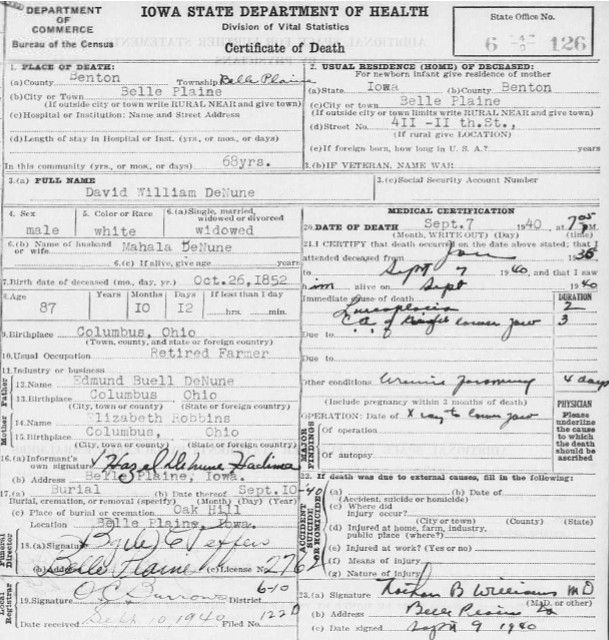 DEPARTMENT OF COMMERCE
Bureau of the Census
IOWA STATE DEPARTMENT OF HEALTH
Division of Vital Statistics
Certificate of Death
State Office No.
6 126
1. PLACE OF DEATH:
(a) County Benton Township Belle Plaine
(b) City or Town Belle Plaine
(If outside city or town write RURAL NEAR and give town)
(c) Hospital or Institution: Name and Street Address
(d) Length of stay in Hospital or Inst. (yrs., or mos., or days)
In this community (yrs., or mos., or days) 68yrs.
2. USUAL RESIDENCE (HOME) OF DECEASED:
For newborn infant give residence of mother
(a) State Iowa (b) County Benton
(c) City or town Belle Plaine
(If outside city or town limits write RURAL NEAR and give town)
(d) Street No. 4II -II th.St.,
(If rural give LOCATION)
(e) If foreign born, how long in U. S. A.? years
3. (a) FULL NAME
David William DeNune
3. (b) IF VETERAN, NAME WAR
3. (c) Social Security Account Number
4. Sex male
5. Color or Race white
6. (a) Single, married, widowed or divorced widowed
6. (b) Name of husband or wife Mahala DeNune
6. (c) If alive, give age years
7. Birth date of deceased (mo., day, yr.) Oct.26,1852
8. Age 87 Years Months 10 Days 12 If less than 1 day hrs. min.
9. Birthplace Columbus, Ohio
(Town, county, and state or foreign country)
10. Usual Occupation Retired Farmer
11. Industry or business
Father
12. Name Edmund Buell DeNune
13. Birthplace Columbus Ohio
(City, town or county) (State or foreign country)
Mother
14. Name Elizabeth Robbins
15. Birthplace Columbus, Ohio
(City, town or county) (State or foreign country)
16. (a) Informant's own signature Hazel DeNune
(b) Address Belle Plaine, Iowa.
17. (a) Burial (b) Date thereof Sept.10-40
Burial, cremation, or removal (specify) (Month) (Day) (Year)
(c) Place of burial or cremation Oak Hill
Location Belle Plaine, Iowa.
Funeral Director
18. (a) Signature
(b) Address Belle Plaine (c) License No. 2762
Local Registrar
19. Signature O C Burrows District 6-10
Date received Sept 10, 1940 Filed No. 122D
MEDICAL CERTIFICATION
20. DATE OF DEATH Sept.7 1940 at M.
(Month, WRITE OUT) (Day) (time)
21. I CERTIFY that death occurred on the date above stated; that I
attended deceased from Jan 1935
to Sept 7 1940, and that I saw
him alive on Sept 1940
Immediate cause of death DURATION
2
Ca of Right lower jaw 3
Due to
Due to
Other conditions 4 days
(Include pregnancy within 3 months of death)
MAJOR FINDINGS
OPERATION: Date of X ray to lower jaw
Of operation
Of autopsy
PHYSICIAN
Please underline the cause to which the death should be ascribed
22. If death was due to external causes, fill in the following:
ACCIDENT SUICIDE OR HOMICIDE
(a) (b) Date of
(Accident, suicide or homicide)
(c) Where did injury occur?
(City or town) (County) (State)
(d) Injured at home, farm, industry, public place (where?)
(e) Injured at work? (Yes or no)
(f) Means of injury
(g) Nature of injury
23. (a) Signature Nathan B Williams MD
(M.D. or other)
(b) Address Belle Plaine Ia
(c) Date signed Sept 9 1940